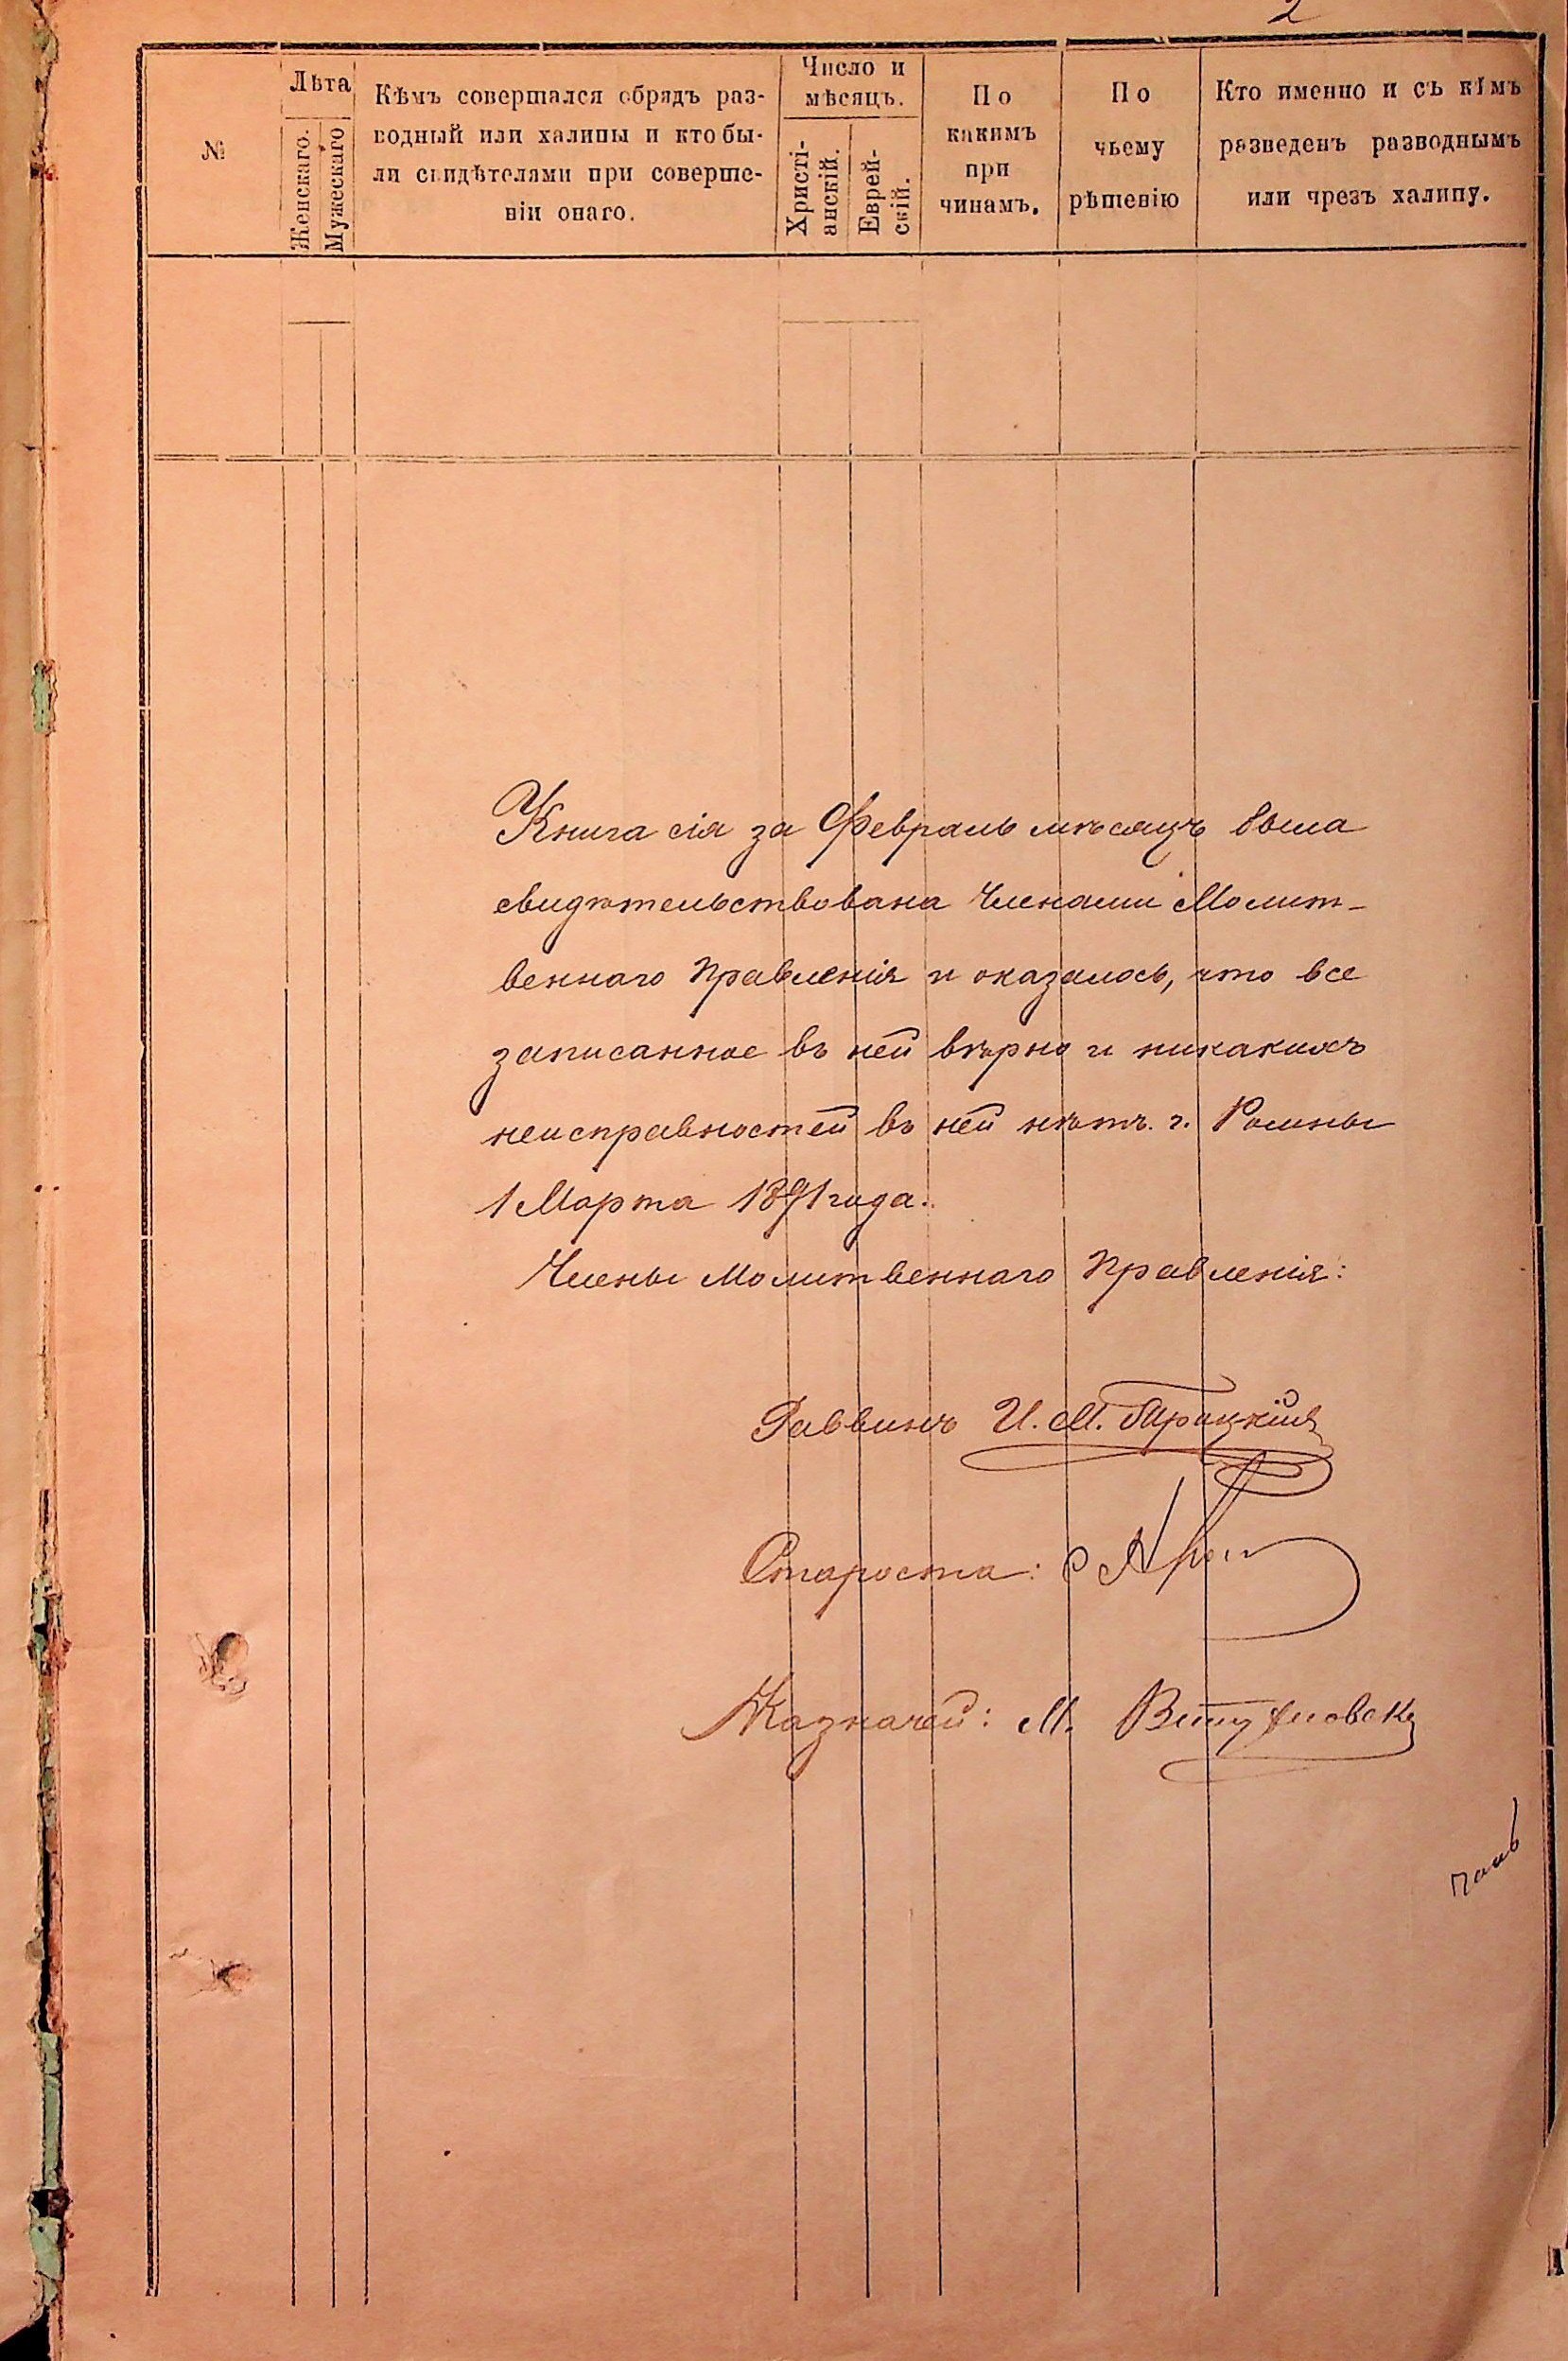 2
№
Лѣта
Женскаго.
Мужескаго
Кѣмъ совершался обрядъ раз-
водный или халицы и кто бы-
ли свидѣтелями при соверше-
ніи онаго.
Число и
мѣсяцъ.
Христі-
анскій.
Еврей-
скій.
По
какимъ
при
чинамъ.
По
чьему
рѣшенію
Кто именно и съ кѣмъ
разведенъ разводнымъ
или чрезъ халицу.
Книга сія за Февраль мѣсяцъ была
свидѣтельствована Членами Молит-
веннаго Правленія и оказалось, что все
записанное въ ней вѣрно и никакихъ
неисправностей въ ней нѣтъ. г. Ромны
1 Марта 1891 года.
Члены Молитвеннаго Правленія:
Раввинъ И. М.
Староста:
Казначей: М.